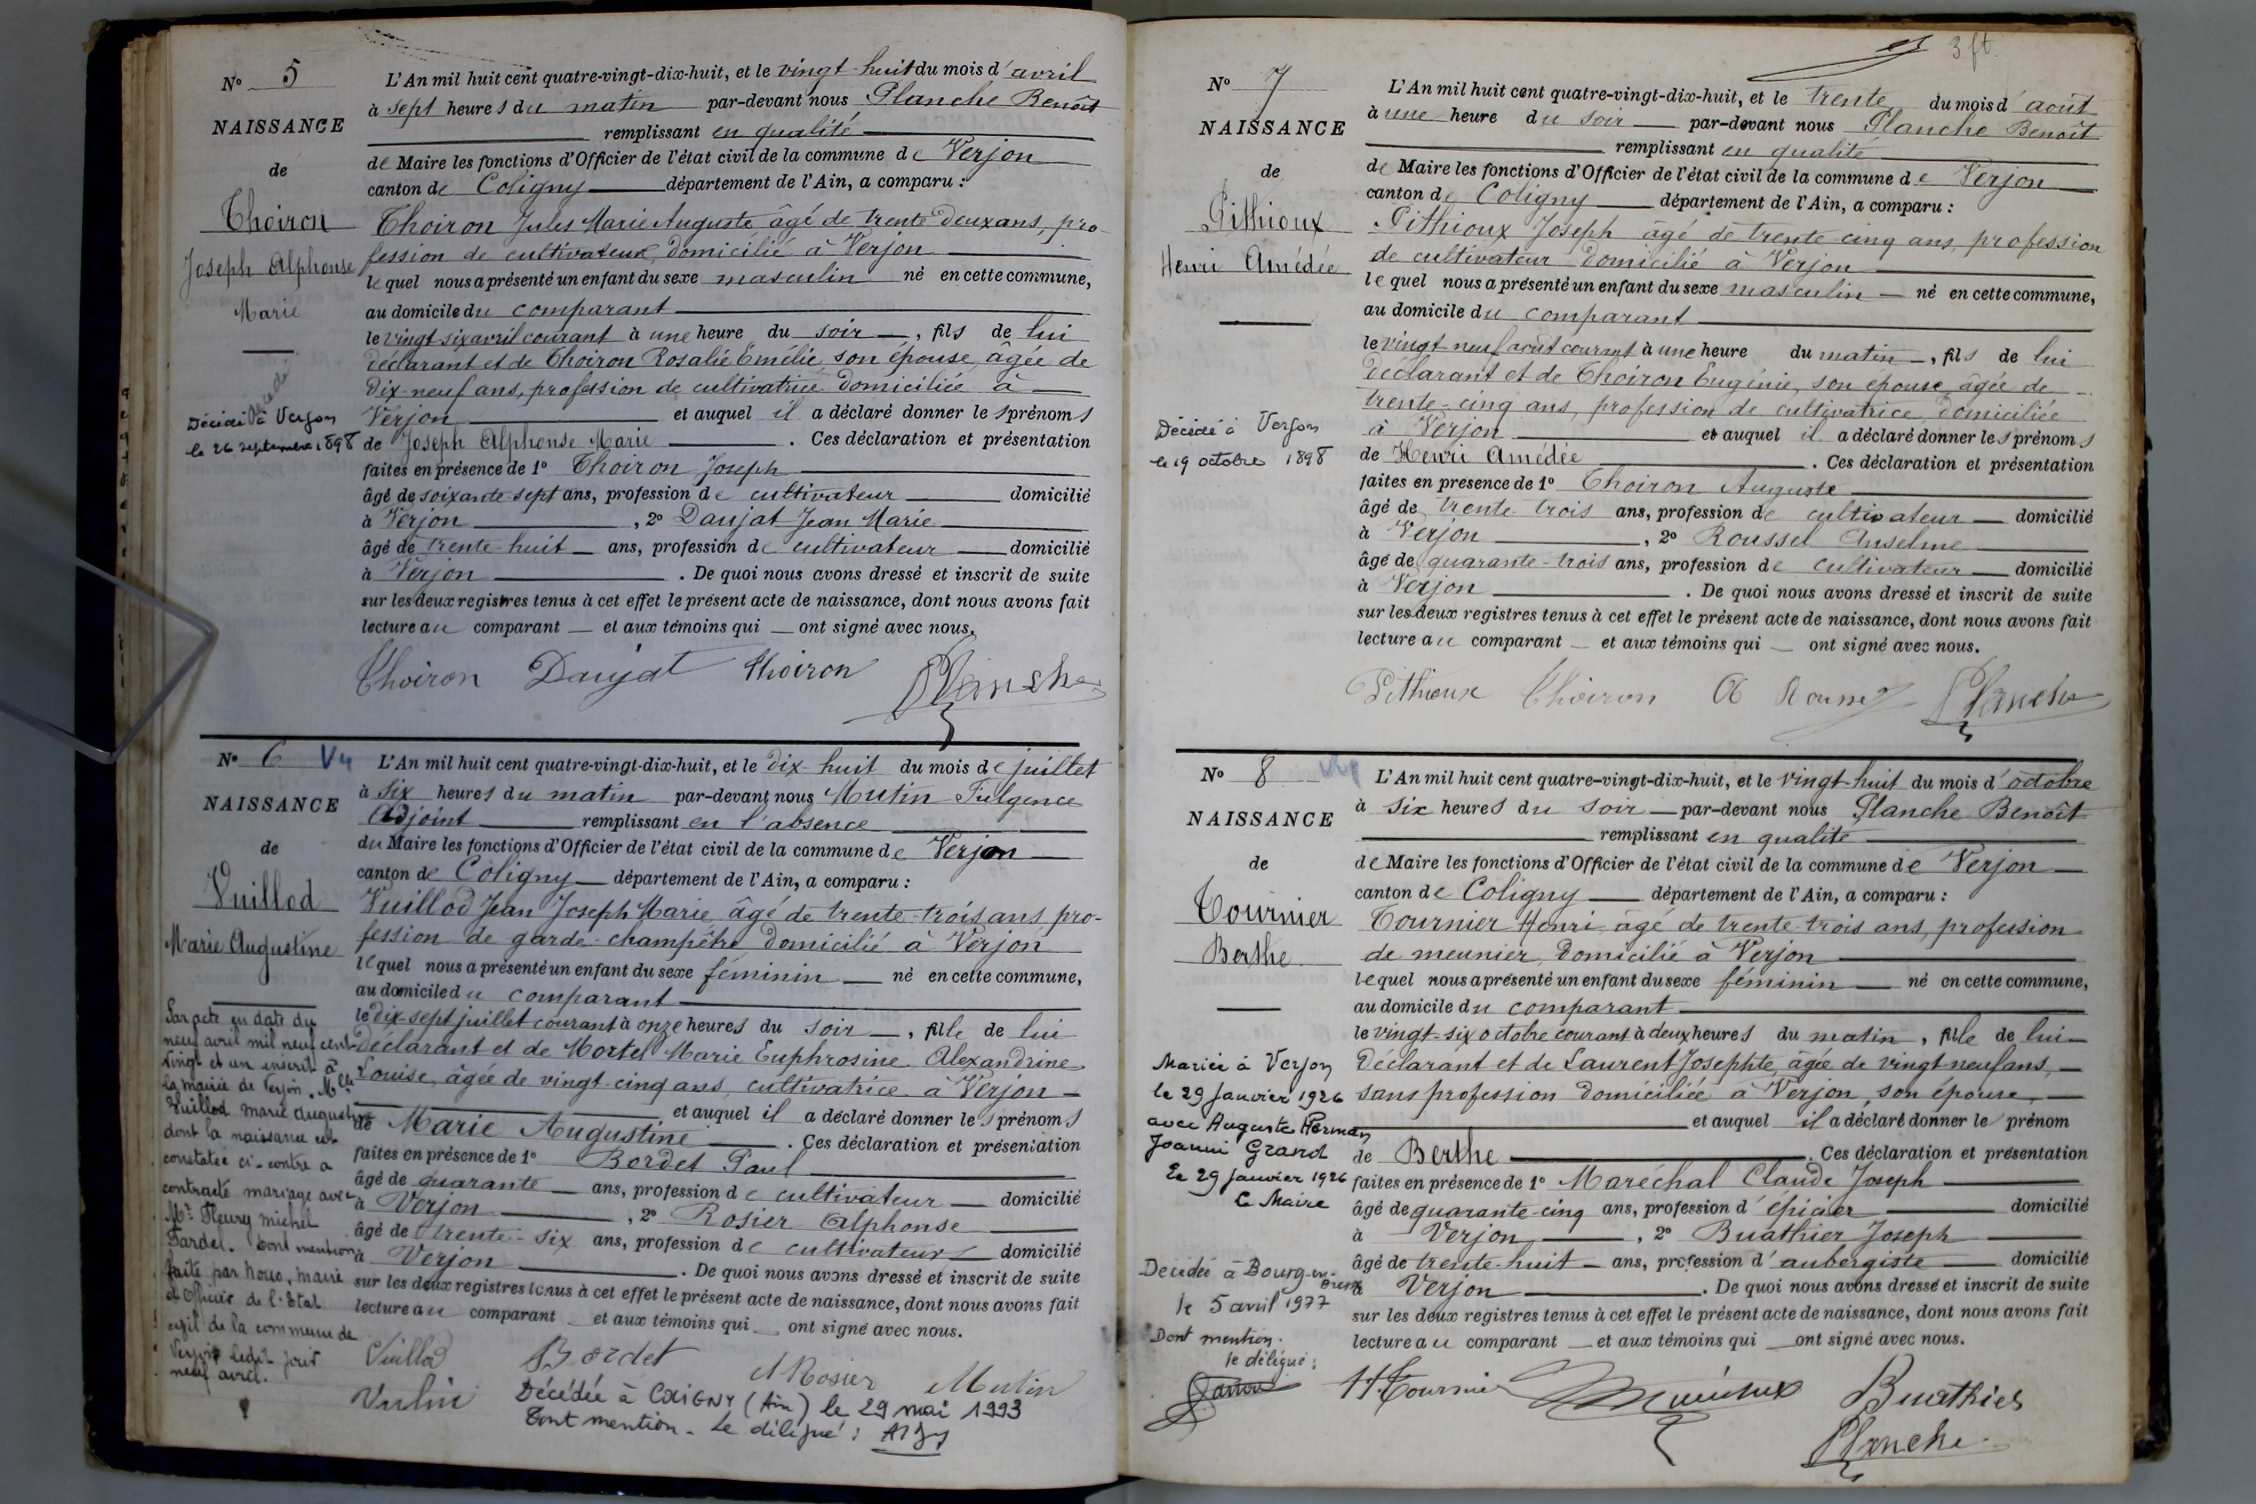 N° 5
NAISSANCE
de
Thoiron
Joseph Alphonse
Marie
Décédé à Verjon
le 26 septembre 1898
L'An mil huit cent quatre-vingt-dix-huit, et le vingt-huit du mois d'avril
à sept heures du matin par-devant nous Planche Benoît
remplissant en qualité
de Maire les fonctions d'Officier de l'état civil de la commune de Verjon
canton de Coligny département de l'Ain, a comparu :
Thoiron Jules Marie Auguste âgé de trente deux ans, pro-
fession de cultivateur, domicilié à Verjon
lequel nous a présenté un enfant du sexe masculin né en cette commune,
au domicile du comparant
le vingt-six avril courant à une heure du soir, fils de lui
déclarant et de Thoiron Rosalie Emélie, son épouse, âgée de
dix-neuf ans, profession de cultivatrice domiciliée à
Verjon et auquel il a déclaré donner les prénoms
de Joseph Alphonse Marie. Ces déclaration et présentation
faites en présence de 1° Thoiron Joseph
âgé de soixante-sept ans, profession de cultivateur domicilié
à Verjon, 2° Daujat Jean Marie
âgé de trente-huit ans, profession de cultivateur domicilié
à Verjon. De quoi nous avons dressé et inscrit de suite
sur les deux registres tenus à cet effet le présent acte de naissance, dont nous avons fait
lecture au comparant et aux témoins qui ont signé avec nous.
Thoiron Daujat Thoiron Planche
N° 6 Vu
NAISSANCE
de
Vuillod
Marie Augustine
Par acte en date du
neuf avril mil neuf cent
vingt et un inscrit à
la mairie de Verjon. Mlle
Vuillod Marie Augustine
dont la naissance est
constatée ci-contre a
contracté mariage avec
Mr Fleury Michel
Pardel. Dont mention
faite par nous, maire
et Officier de l'Etat
civil de la commune de
Verjon ledit jour
neuf avril.
L'An mil huit cent quatre-vingt-dix-huit, et le dix-huit du mois de juillet
à six heures du matin par-devant nous Mutin Fulgence
Adjoint remplissant en l'absence
du Maire les fonctions d'Officier de l'état civil de la commune de Verjon
canton de Coligny département de l'Ain, a comparu :
Vuillod Jean Joseph Marie âgé de trente-trois ans, pro-
fession de garde-champêtre, domicilié à Verjon
lequel nous a présenté un enfant du sexe féminin né en cette commune,
au domicile du comparant
le dix-sept juillet courant à onze heures du soir, fille de lui
déclarant et de Mortel Marie Euphrosine Alexandrine
Louise, âgée de vingt-cinq ans, cultivatrice à Verjon
et auquel il a déclaré donner les prénoms
de Marie Augustine. Ces déclaration et présentation
faites en présence de 1° Bordet Paul
âgé de quarante ans, profession de cultivateur domicilié
à Verjon, 2° Rosier Alphonse
âgé de trente-six ans, profession de cultivateur domicilié
à Verjon. De quoi nous avons dressé et inscrit de suite
sur les deux registres tenus à cet effet le présent acte de naissance, dont nous avons fait
lecture au comparant et aux témoins qui ont signé avec nous.
Vuillod Bordet A Rosier Mutin
Décédée à COLIGNY (Ain) le 29 mai 1993
Dont mention. Le délégué :
3 ft.
N° 7
NAISSANCE
de
Pithioux
Henri Amédée
Décédé à Verjon
le 19 octobre 1898
L'An mil huit cent quatre-vingt-dix-huit, et le trente du mois d'août
à une heure du soir par-devant nous Planche Benoît
remplissant en qualité
de Maire les fonctions d'Officier de l'état civil de la commune de Verjon
canton de Coligny département de l'Ain, a comparu :
Pithioux Joseph âgé de trente-cinq ans, profession
de cultivateur domicilié à Verjon
lequel nous a présenté un enfant du sexe masculin né en cette commune,
au domicile du comparant
le vingt neuf août courant à une heure du matin, fils de lui
déclarant et de Thoiron Eugénie, son épouse âgée de
trente-cinq ans, profession de cultivatrice, domiciliée
à Verjon et auquel il a déclaré donner les prénoms
de Henri Amédée. Ces déclaration et présentation
faites en présence de 1° Thoiron Auguste
âgé de trente-trois ans, profession de cultivateur domicilié
à Verjon, 2° Roussel Anselme
âgé de quarante-trois ans, profession de cultivateur domicilié
à Verjon. De quoi nous avons dressé et inscrit de suite
sur les deux registres tenus à cet effet le présent acte de naissance, dont nous avons fait
lecture au comparant et aux témoins qui ont signé avec nous.
Pithioux Thoiron A Roussel Planche
N° 8
NAISSANCE
de
Tournier
Berthe
Mariée à Verjon
le 29 Janvier 1926
avec Auguste Herman
Joanni Grand
Le 29 Janvier 1926
Le Maire
Décédée à Bourg-en-
Bresse
le 5 avril 1977
Dont mention.
le délégué :
L'An mil huit cent quatre-vingt-dix-huit, et le vingt-huit du mois d'octobre
à six heures du soir par-devant nous Planche Benoît
remplissant en qualité
de Maire les fonctions d'Officier de l'état civil de la commune de Verjon
canton de Coligny département de l'Ain, a comparu :
Tournier Henri âgé de trente-trois ans, profession
de meunier domicilié à Verjon
lequel nous a présenté un enfant du sexe féminin né en cette commune,
au domicile du comparant
le vingt-six octobre courant à deux heures du matin, fille de lui
déclarant et de Laurent Josephte, âgée de vingt neuf ans,
sans profession domiciliée à Verjon, son épouse,
et auquel il a déclaré donner le prénom
de Berthe. Ces déclaration et présentation
faites en présence de 1° Maréchal Claude Joseph
âgé de quarante-cinq ans, profession d'épicier domicilié
à Verjon, 2° Buathier Joseph
âgé de trente-huit ans, profession d'aubergiste domicilié
à Verjon. De quoi nous avons dressé et inscrit de suite
sur les deux registres tenus à cet effet le présent acte de naissance, dont nous avons fait
lecture au comparant et aux témoins qui ont signé avec nous.
H. Tournier Buathier
Planche